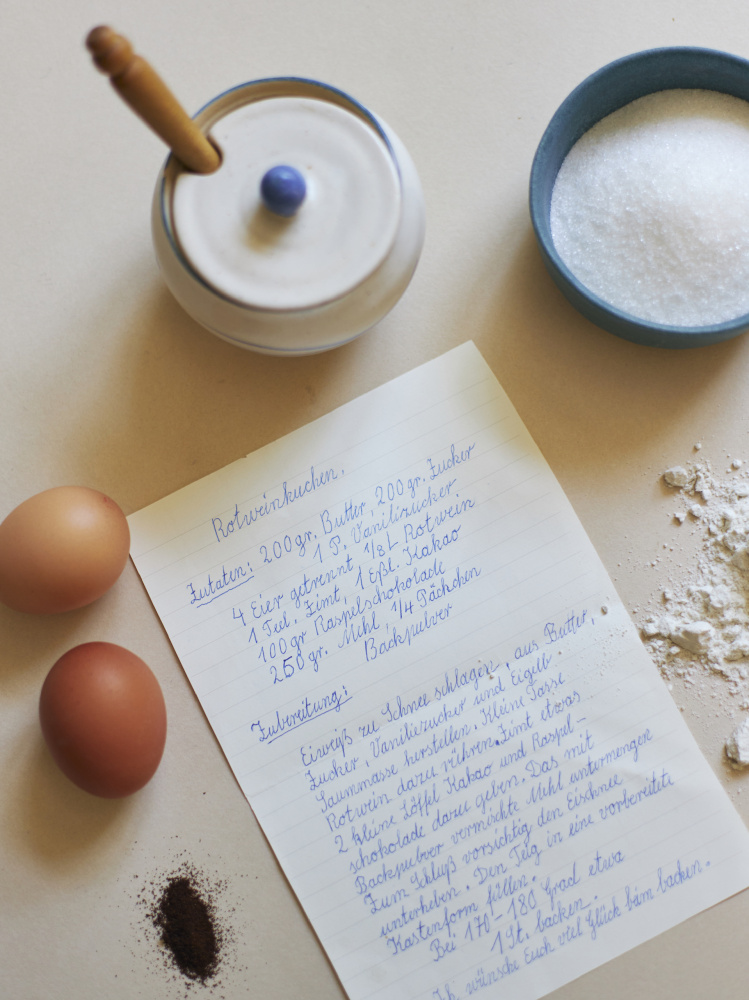 Rotweinkuchen.
Zutaten: 200gr. Butter, 200gr. Zucker
1 P. Vanilizucker
4 Eier getrennt 1/8 L Rotwein
1 Teel. Zimt, 1 Eßl. Kakao
100gr Raspelschokolade
250gr. Mehl, 1/4 Päckchen
Backpulver
Zubereitung:
Eiweiß zu Schnee schlagen, aus Butter,
Zucker, Vanillezucker und Eigelb
Saummasse herstellen. Kleine Tasse
Rotwein dazu rühren. Zimt etwas
2 kleine Löffel Kakao und Raspel-
schokolade dazu geben. Das mit
Backpulver vermischte Mehl untermengen
Zum Schluß vorsichtig den Eischnee
unterheben. Den Teig in eine vorbereitete
Kastenform füllen.
Bei 170-180 Grad etwa
1 St. backen.
Ich wünsche Euch viel Glück beim backen.